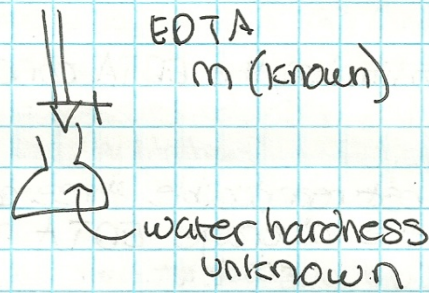 EDTA
M (known)
water hardness
unknown